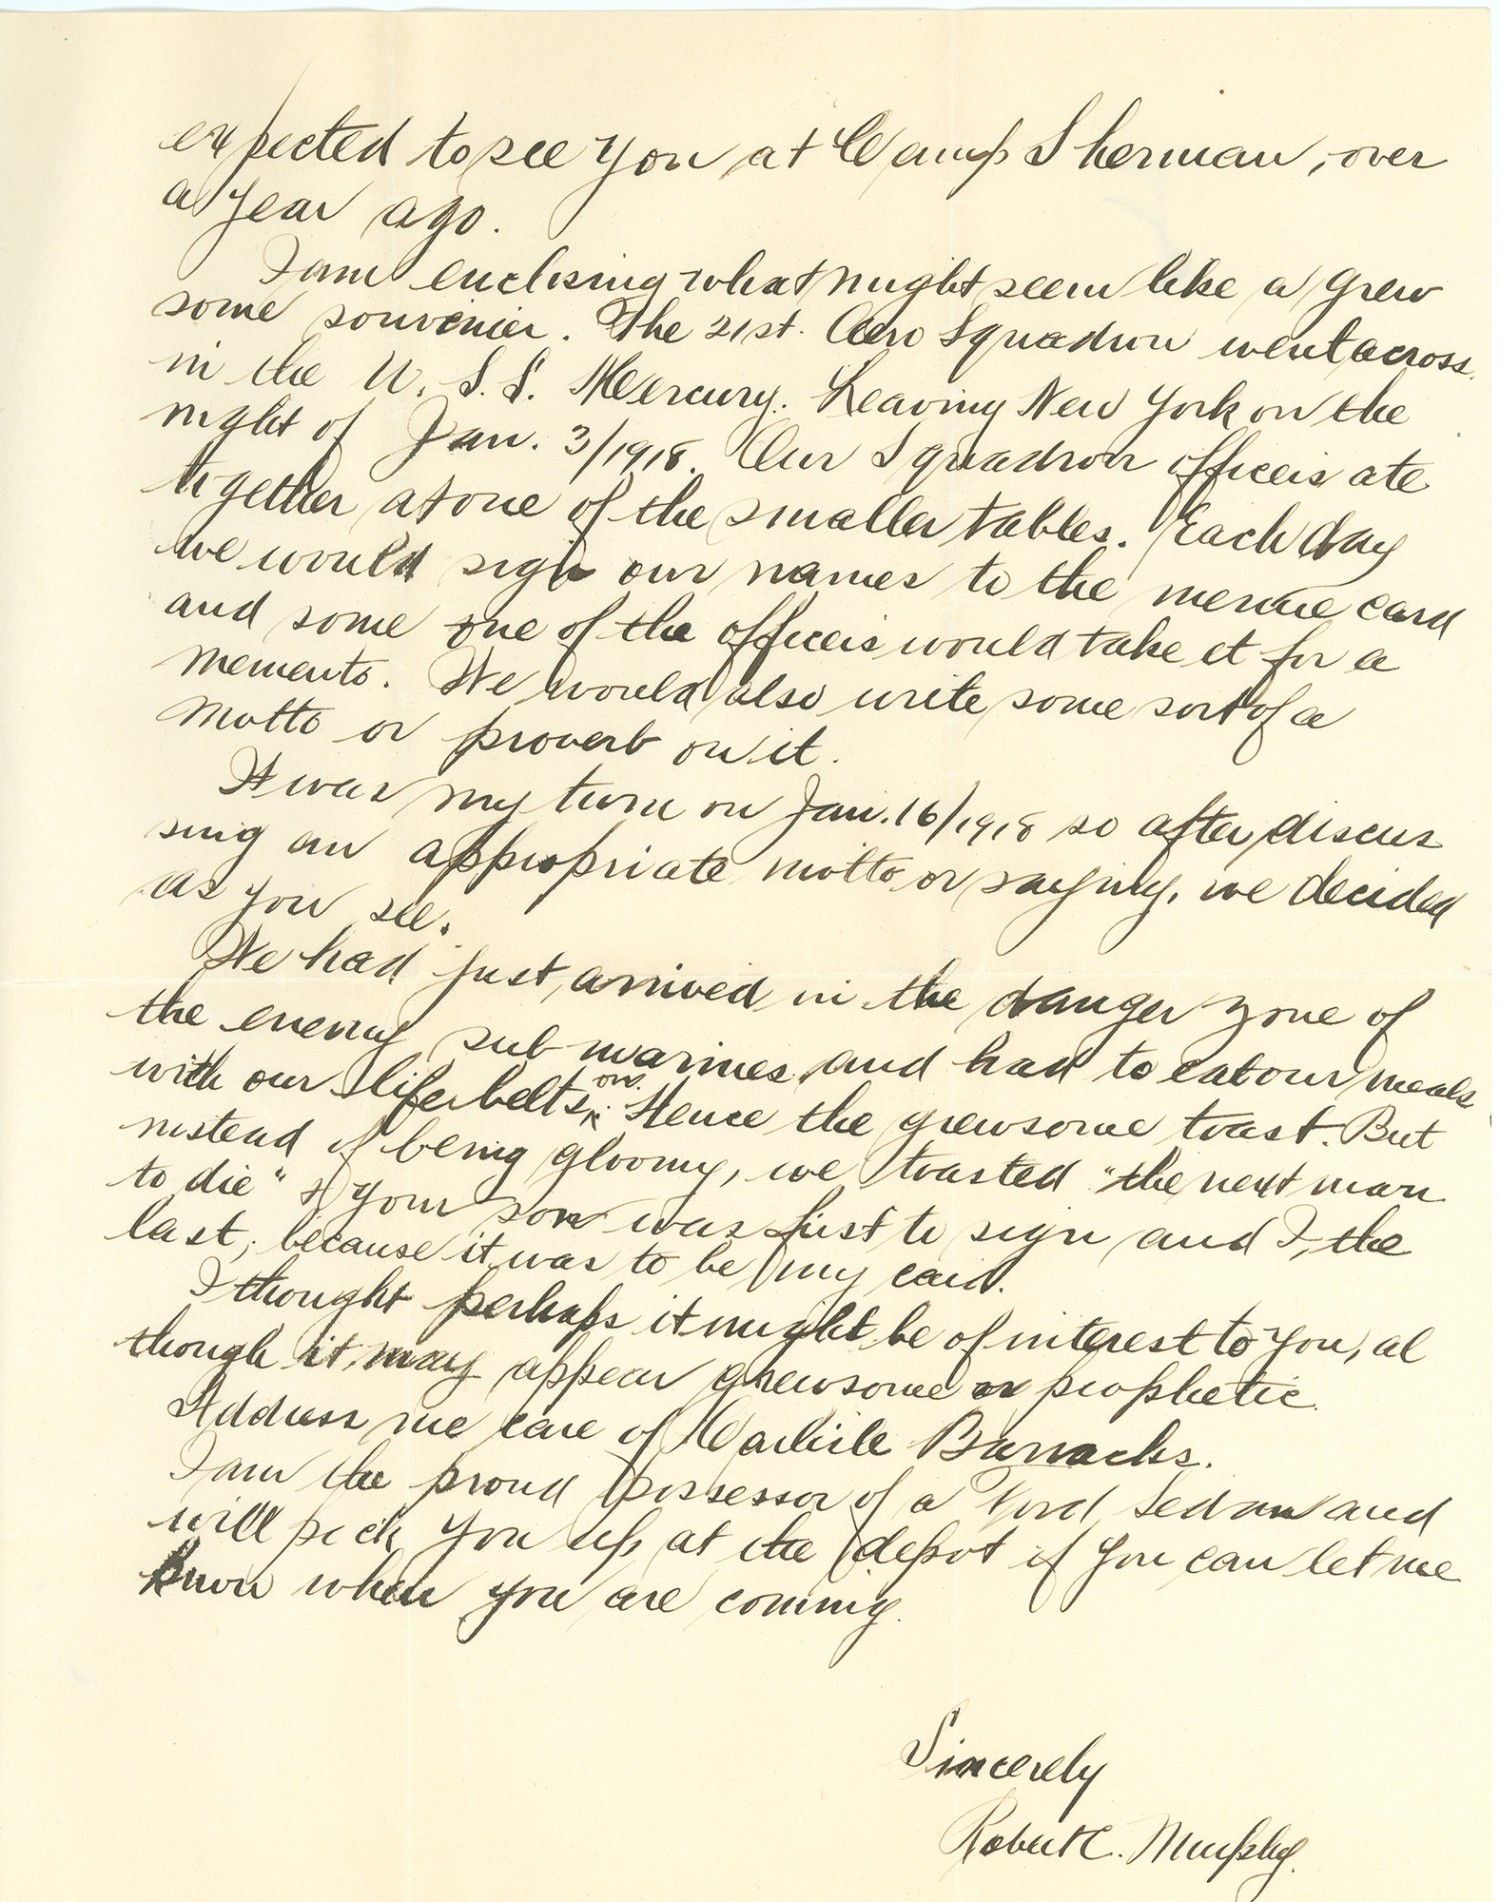 expected to see you at Camp Sherman, over
a year ago.
I am enclosing what might seem like a grew
some souvenier. The 21st. Aero Squadron went across
in the U. S. S. Mercury. Leaving New York on the
night of Jan. 3/1918. Our Squadron officers ate
together at one of the smaller tables. Each day
we would sign our names to the menue card
and some one of the officers would take it for a
memento. We would also write some sort of a
motto or proverb on it.
It was my turn on Jan. 16/1918 so after discus
sing an appropriate motto or saying, we decided
as you see.
We had just arrived in the danger zone of
the enemy sub-marines and had to eat our meals
with our life belts on. Hence the grewsome toast. But
instead of being gloomy, we toasted "the next man
to die" & your son was first to sign and I, the
last; because it was to be my card.
I thought perhaps it might be of interest to you, al
though it may appear grewsome or prophetic.
Address me care of Carlisle Barracks.
I am the proud possessor of a Ford Sedan and
will pick you up at the depot if you can let me
know when you are coming.
Sincerely
Robert C. Murphy.